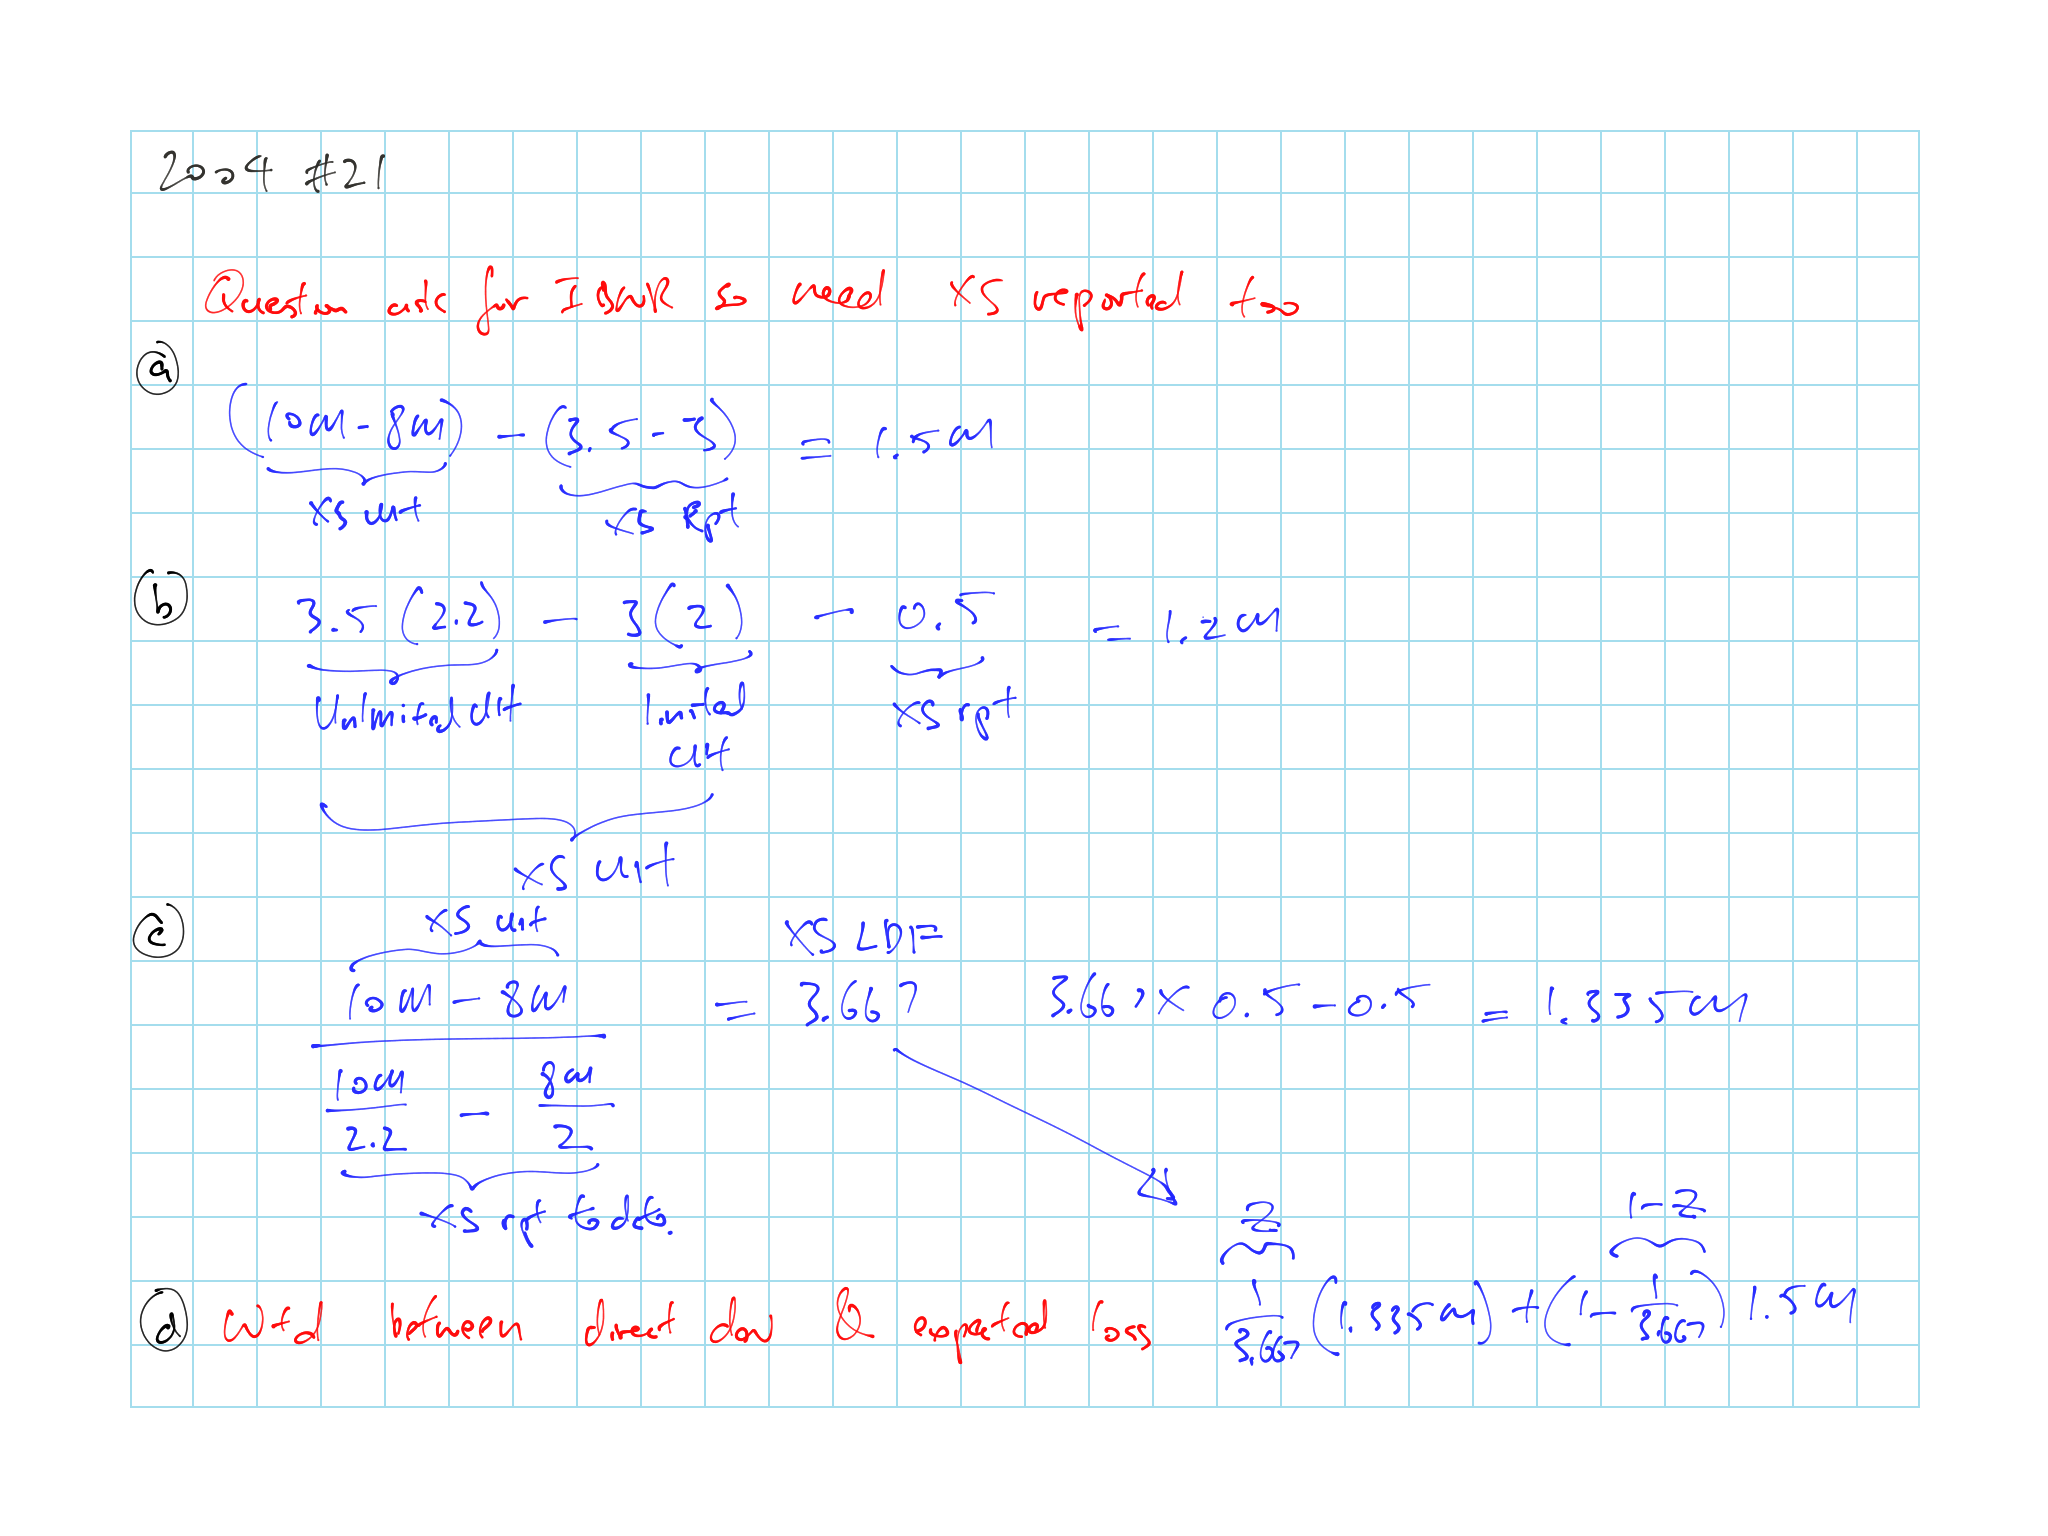 2004 #21
Question asks for IBNR so need XS reported too
(a)
(10M - 8M) - (3.5 - 3) = 1.5M
XS ult XS Rpt
(b) 3.5 (2.2) - 3(2) - 0.5 = 1.2M
Unlimited ult limited ult XS rpt
XS ult
(c) XS ult XS LDF
10M - 8M = 3.667 3.667 x 0.5 - 0.5 = 1.335M
10M/2.2 - 8M/2
XS rpt to date.
Z 1-Z
(d) Wtd between direct dev & expected loss 1/3.667 (1.335M) + (1 - 1/3.667) 1.5M